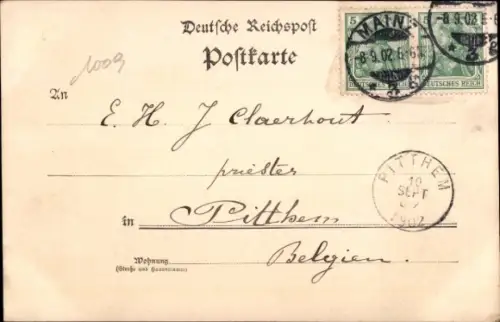 Deutsche Reichspost
Postkarte
1009
5
MAINZ
-8.9.02.6-
DEUTSCHES REICH
-8.9.02.6-
An
E. H. J Claerhout
priester
in Pitthem
Belgien.
PITTHEM
10
SEPT
1902
Wohnung
(Straße und Hausnummer)